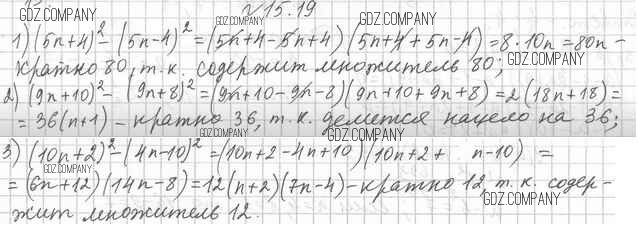 №15.19
1) (5n+4)² - (5n-4)² = (5n+4-5n+4) (5n+4+5n-4) = 8·10n = 80n -
кратно 80, т.к. содержит множитель 80;
2) (9n+10)² - (9n+8)² = (9n+10-9n-8)(9n+10+9n+8) = 2(18n+18) =
= 36(n+1) - кратно 36, т.к. делется нацело на 36;
3) (10n+2)² - (4n-10)² = (10n+2-4n+10)(10n+2+ n-10) =
= (6n+12)(14n-8) = 12(n+2)(7n-4) - кратно 12, т.к. содер-
жит множитель 12.
GDZ.COMPANY
GDZ.COMPANY
GDZ.COMPANY
GDZ.COMPANY
GDZ.COMPANY
GDZ.COMPANY
GDZ.COMPANY
GDZ.COMPANY
GDZ.COMPANY